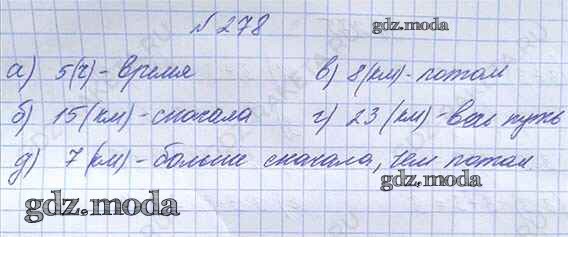 № 278
gdz.moda
а) 5(ч) - время в) 8(км) - потом
б) 15(км) - сначала г) 23(км) - весь путь
д) 7(км) - больше сначала, чем потом
gdz.moda
gdz.moda